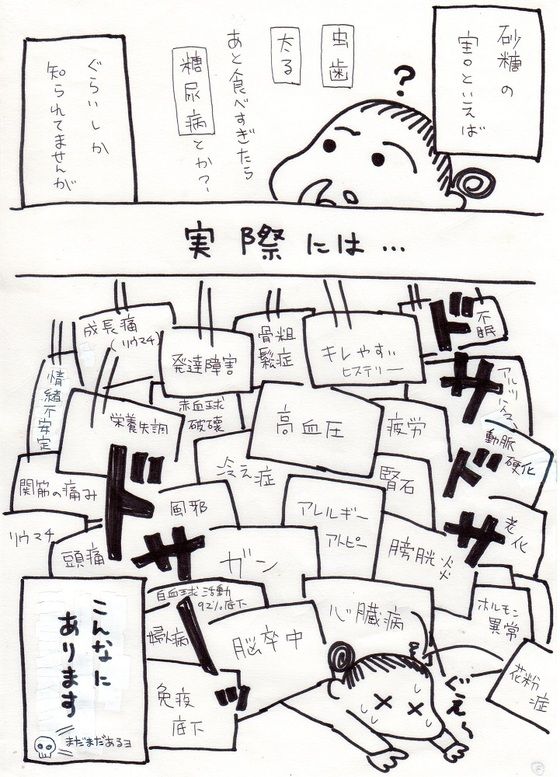 砂糖の
害といえば
?
虫歯
太る
あと食べすぎたら
糖尿病とか?
ぐらいしか
知られてませんが
実際には…
成長痛
(リウマチ)
発達障害
骨粗
鬆症
キレやすい
ヒステリー
不
眠
ドサドサ
情緒不安定
栄養失調
赤血球
破壊
高血圧
疲労
アルツ
動脈
硬化
関筋の痛み
風邪
冷え症
アレルギー
アトピー
腎石
老化
リウマチ
頭痛
ガン
膀胱炎
ドサーッ
白血球活動
92%底下
心臓病
ホルモン
異常
婦病
脳卒中
花粉
症
免疫
底下
ぐえ〜
こんなに
あります
まだまだあるヨ